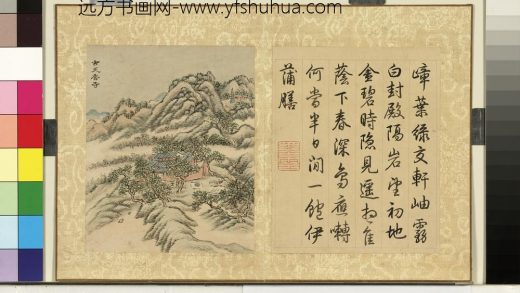 远方书画网-www.yfshuhua.com
古天香寺
嶂葉綠交軒岫靄
白封殿陽岩望初地
金碧時隱見遙想雀
蔭下春深鳥應轉
何當半日閒一飽伊
蒲膳